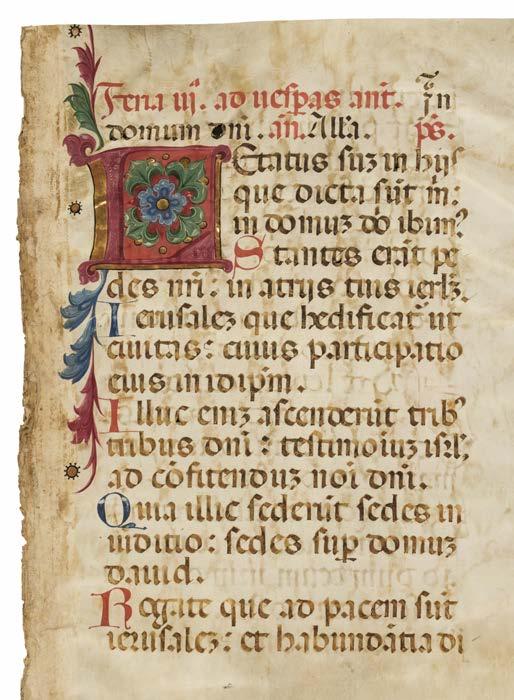 Feria iij. ad uesp̃as ant̃. In
domum dñi. añ. Alla. p̃s.
LEtatus suz in hijs
que dicta sũt m̃:
in domuz dñ ibimꝰ
Stantes erãt pe
des nr̃i: in atrijs tuis ierlz̃.
Ierusalez que hedificat̃ ut
ciuitas: cuius participatio
eius in idip̃m.
Illuc eniz ascenderũt tribꝰ
tribus dñi: testimoiuz isrl̃,
ad cõfitenduz noĩ dñi.
Quia illic sederũt sedes in
iuditio: sedes sup̃ domuz
dauid.
Rogate que ad pacem sũt
ierusalez: et habundãtia di